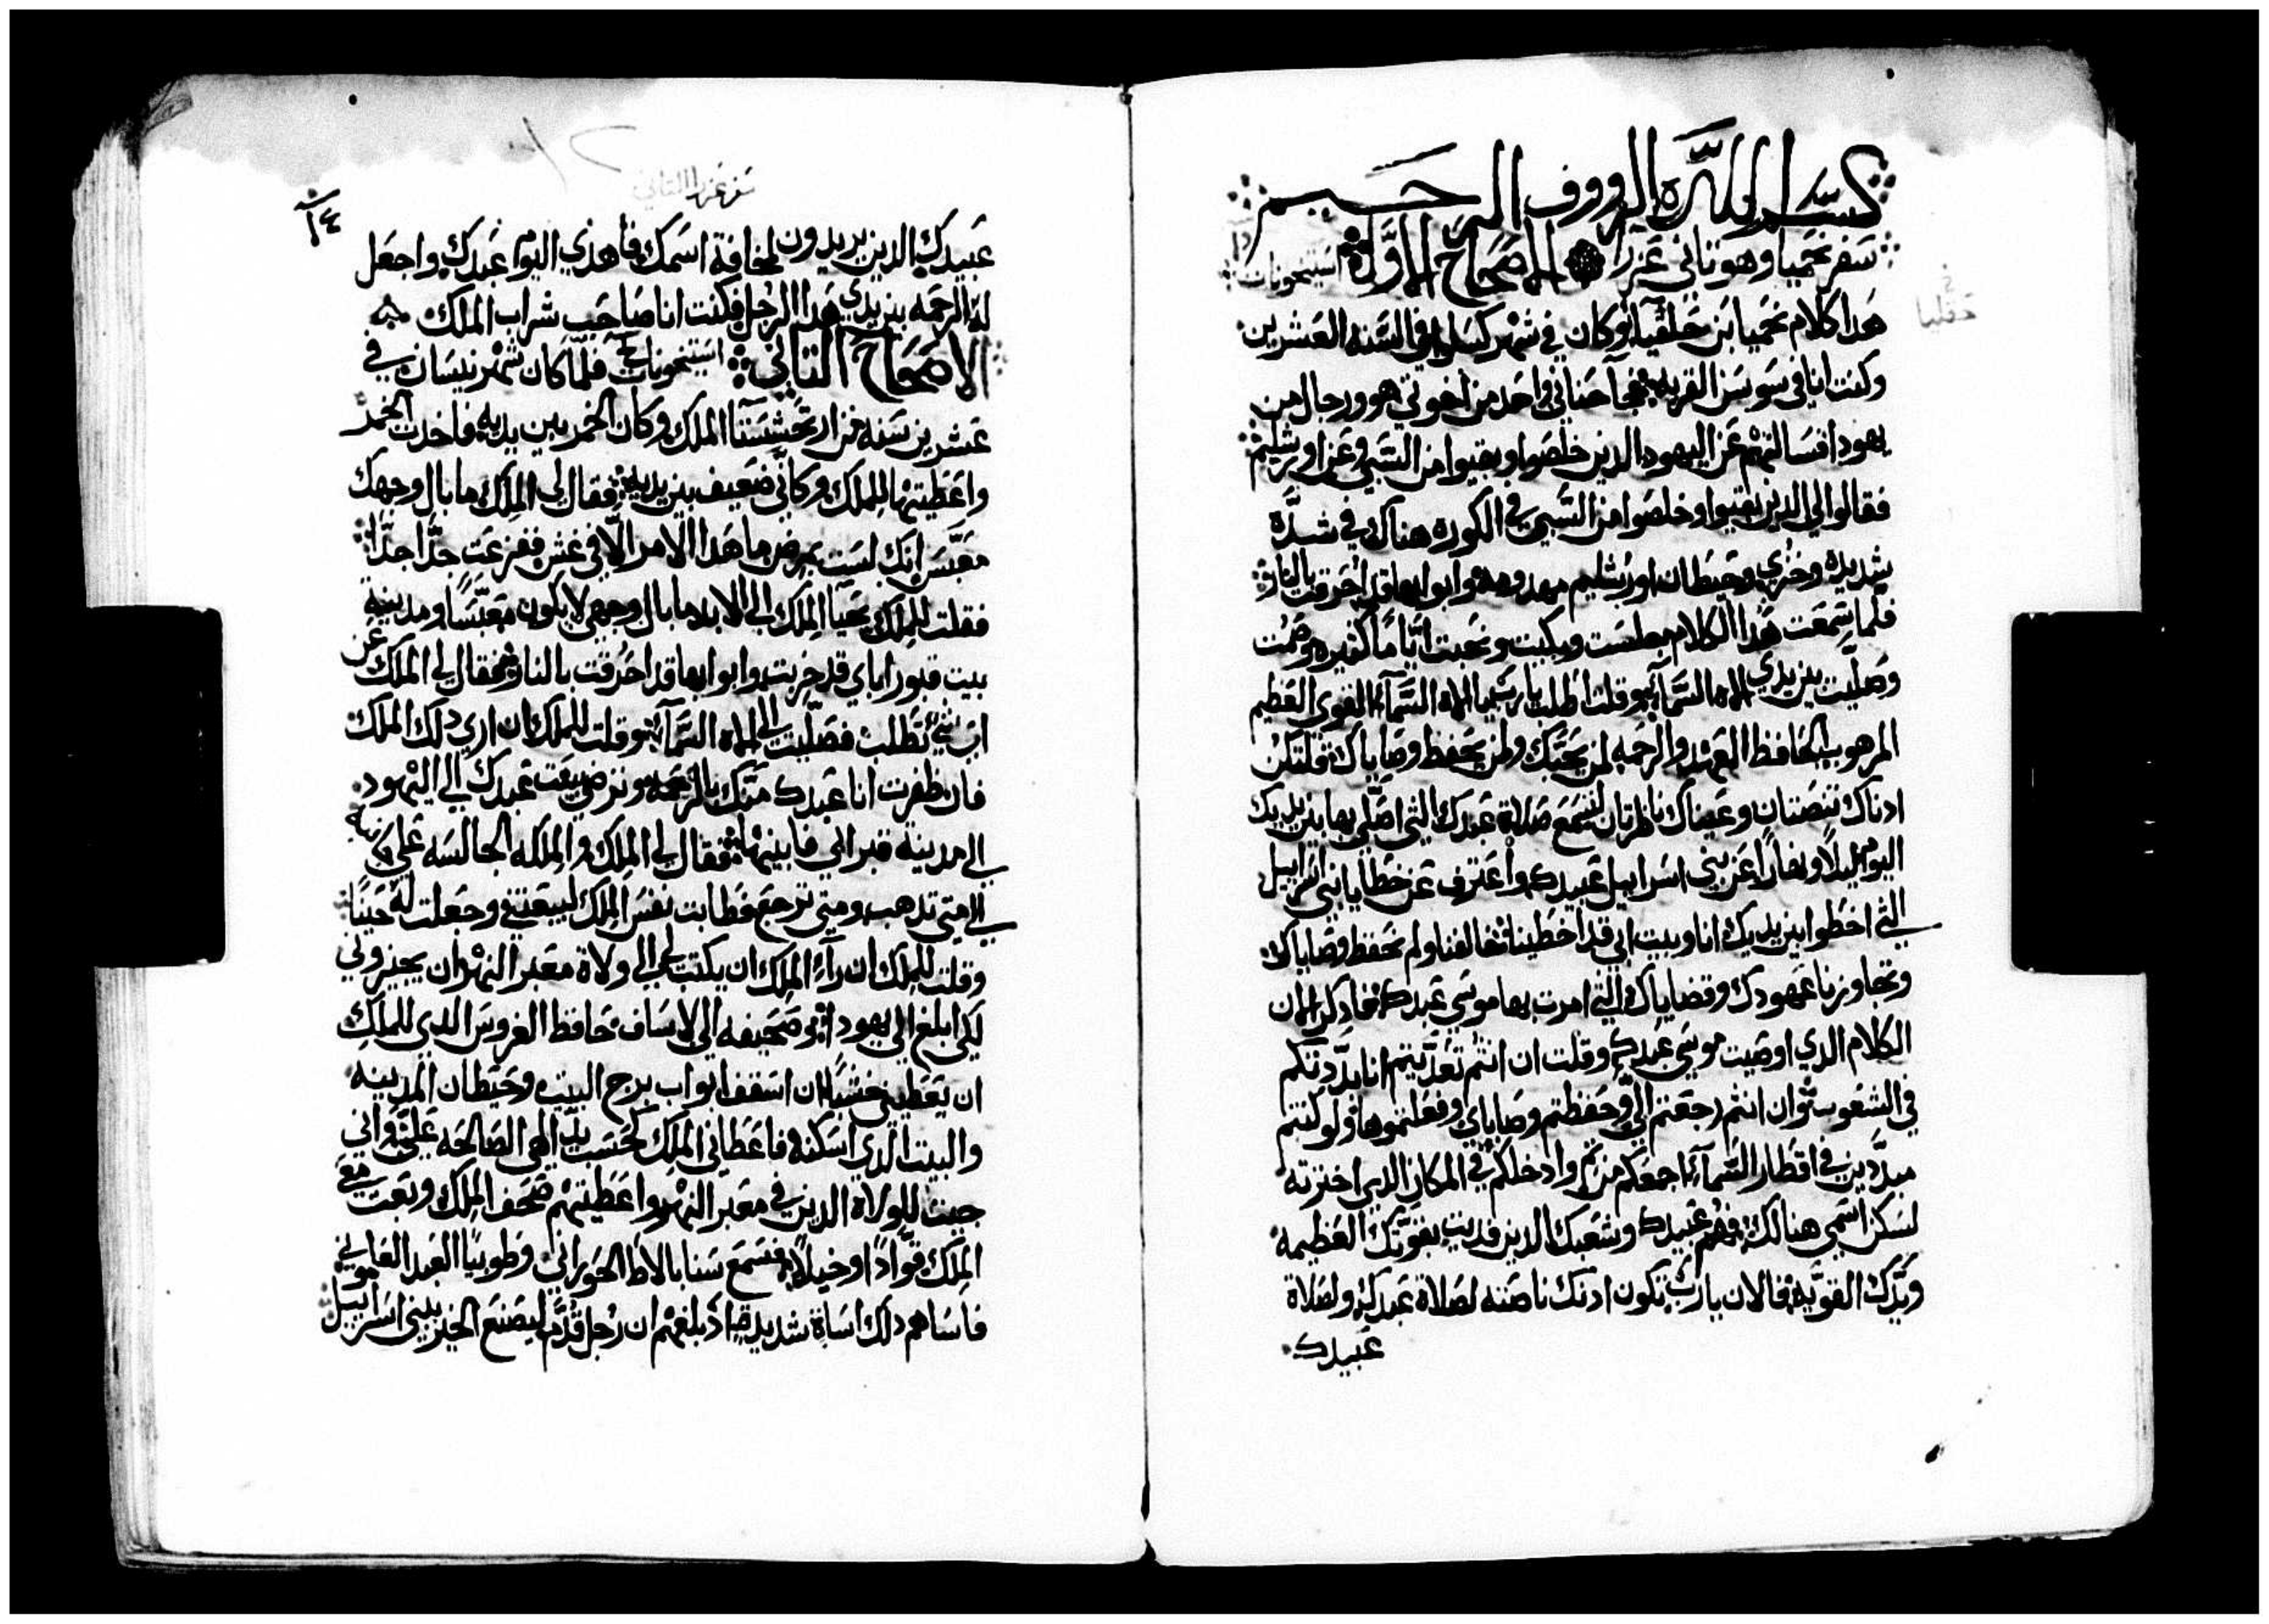 بسم الله الرووف الرحيم
سفر نحميا وهو تاني عزرا الاصحاح الاول استيخونات
هدا كلام نحميا ابن حلقيا وكان في شهر كسلوا في السنه العشرين
وكنت انا في سوسن القريه فجا حناني واحد من اخوتي هو ورجال من
يهودا فسالتهم عن اليهود الدين خلصوا وبقيوا من السبي وعن اورشليم
فقالوا لي الدين بقيوا وخلصوا من السبي في الكوره هناك في شدّه
شديده وخزي وحيطان اورشليم مهدومه وابوابها قد احرقت بالنار
فلما سمعت هدا الكلام جلست وبكيت ونحبت ايّامًا كثيره وصمت
وصلّيت بين يدي الاه السّمآء وقلت اطلب يا رب يا الاه السّمآء القوي العظيم
المرهوب الحافظ العهد والرحمه لمن يحبّك ولمن يحفظ وصاياك فلتكن
ادناك تنصتان وعيناك ناظرتان لتسمع صلاة عبدك التي اصلّي بها بين يديك
اليوم ليلًا ونهارًا عن بني اسراييل عبيدك واعترف عن خطايا بني اسراييل
التي اخطوا بين يديك انا وبيت ابي قد اخطينا خالفنا ولم نحفظ وصاياك
وتجاوزنا عهودك وقضاياك التي امرت بها موسي عبدك فادكر الان
الكلام الدي اوصيت موسي عبدك وقلت ان انتم تعدّيتم انا ابدّدتكم
في الشعوب وان انتم رجعتم اليّ وحفظتم وصاياي وفعلتموها ولو كنتم
مبدّدين في اقطار السّمآء اجمعكم من ثم وادخلكم في المكان الدي اخترته
لسكن اسمي هنالك فهم عبيدك وشعبك الدين فديت بقوّتك العظيمه
ويدك القويّه فالان يا رب تكون ادنك ناصته لصلاة عبدك ولصلاة
عبيدك
سفر عزرا التاني
١٤
عبيدك الدين يريدون لمخافة اسمك فاهدي اليوم عبدك واجعل
له الرحمه بين يدي هدا الرجل فكنت انا صاحب شراب الملك
الاصحاح التاني استيخونات فلمّا كان شهر نيسان في
عشرين سنه من ارتحشستا الملك وكان الخمر بين يديه فاخدت الخمر
واعطيتها للملك وكاني ضعيف بين يديه فقال لي الملك ما بال وجهك
معبّس انك لست بمرض ما هدا الامر الّا في غش ففزعت جدًّا جدًّا
فقلت للملك يحيا الملك الي الابد ما بال وجهي لا يكون معبّسًا ومدينة
بيت قبور اباي قد خربت وابوابها قد احرقت بالنار فقال لي الملك عن
اي شي تطلب فصلّيت الي الاه السّمآء وقلت للملك ان اري دلك الملك
فان ظفرت انا عبدك منك بالرحمه ونرضي بيعت عبدك الي اليهود
الي مدينة قبر ابي فابنيها فقال لي الملك والملكه الجالسه علي كرسيه
الي متي تدهب ومتي ترجع فطابت نفس الملك ليبعتني وجعلت له حينًا
وقلت للملك ان رآء الملك ان يكتب لي الي ولاة معبر النهر ان يجيزوني
لكي ابلغ الي يهودا وصحيفه الي لاساف حافظ الفروس الدي للملك
ان يعطيني خشبًا ان اسقف ابواب برج البيت وحيطان المدينه
والبيت الدي اسكنه فاعطاني الملك كحسب يد الهي الصالحه عليّ واني
جيت للولاة الدين في معبر النهر واعطيتهم صحف الملك وبعت معي
الملك قوّادًا وخيلًا فسمع سنابالاط الحوراني وطوبيّا العبد العاموني
فاساهم دلك اساة شديدة اد بلغهم ان رجل قدّم ليصنع الخير ببني اسراييل